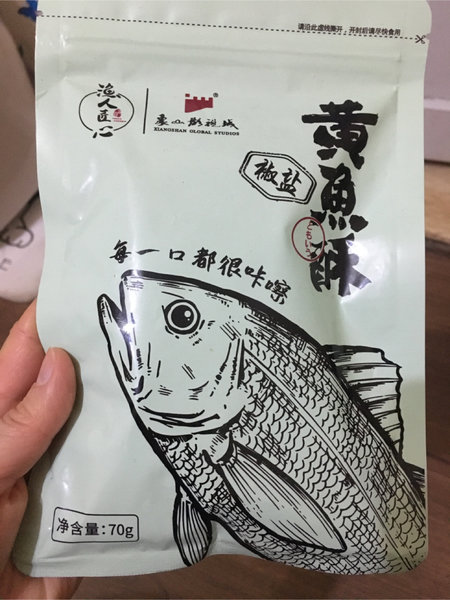 请沿此虚线撕开，开封后请尽快食用
渔人匠心
象山影视城
XIANGSHAN GLOBAL STUDIOS
®
黄魚酥
椒盐
每一口都很咔嚓
净含量:70g